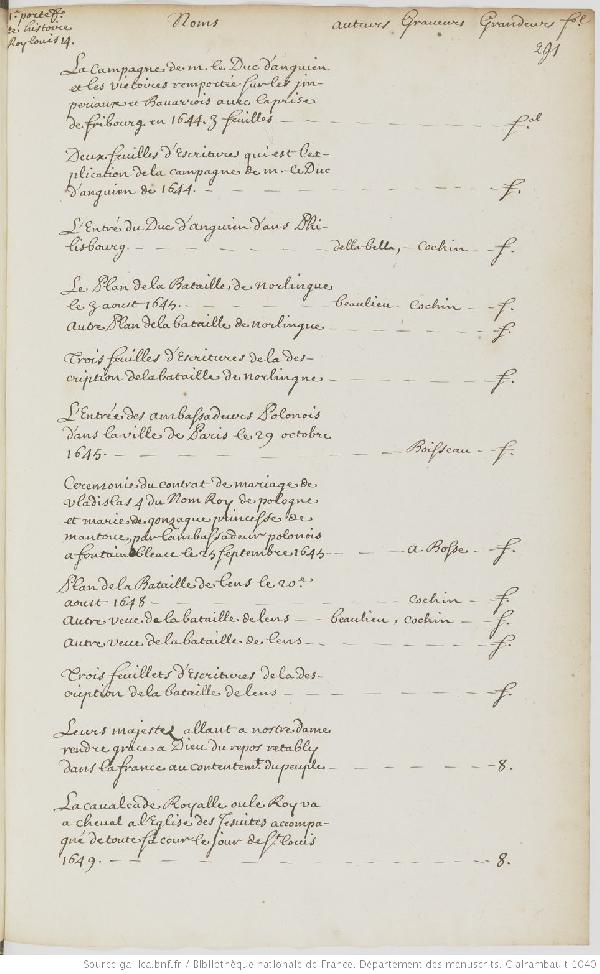 1r. porteff.
de histoire
Roy Louis 14.
Noms auteurs Graveurs Grandeurs fol
291
La Campagne de m. le Duc d'anguien
et les victoires remportée sur les jm-
periaux et Bavarois avec la prise
de fribourg en 1644. 3 feuilles - fol
Deux feuilles d'Escritures qui est l'ex-
plication de la campagne de m. le Duc
d'anguien de 1644. - f.
L'Entré du Duc d'anguien dans Phi-
lisbourg - della bella, Cochin - f.
Le Plan de la Bataille de norlingue
le 3 aoust 1645. - beaulieu - Cochin - f.
autre Plan de la bataille de norlingue - f.
Trois feuilles d'Escritures de la des-
cription de la bataille de norlingue - f.
L'Entrée des ambassadeurs Polonois
dans la ville de Paris le 29 octobre
1645 - Boisseau - f.
Ceremonie du contrat de mariage de
vladislas 4 du Nom Roy de pologne
et marie de gonzague princesse de
mantoue, par l'ambassadeur polonois
a fontainebleau le 25 septembre 1645 - a. Bosse - f.
Plan de la Bataille de lens le 20e
aoust 1648 - cochin - f.
autre veue de la bataille de lens - beaulieu, cochin - f.
autre veue de la bataille de lens - f.
Trois feuillets d'Escritures de la des-
cription de la bataille de lens - f.
Leurs majestez allant a nostre dame
rendre grace a Dieu du repos retably
dans la france au contentemt. du peuple - 8.
La cavalcade Royalle ou le Roy va
a cheval a l'Eglise des Jesuites accompa-
gné de toute sa cour le jour de St. Louis
1649. - 8.
Source gallica.bnf.fr / Bibliothèque nationale de France. Département des manuscrits. Clairambault 1040